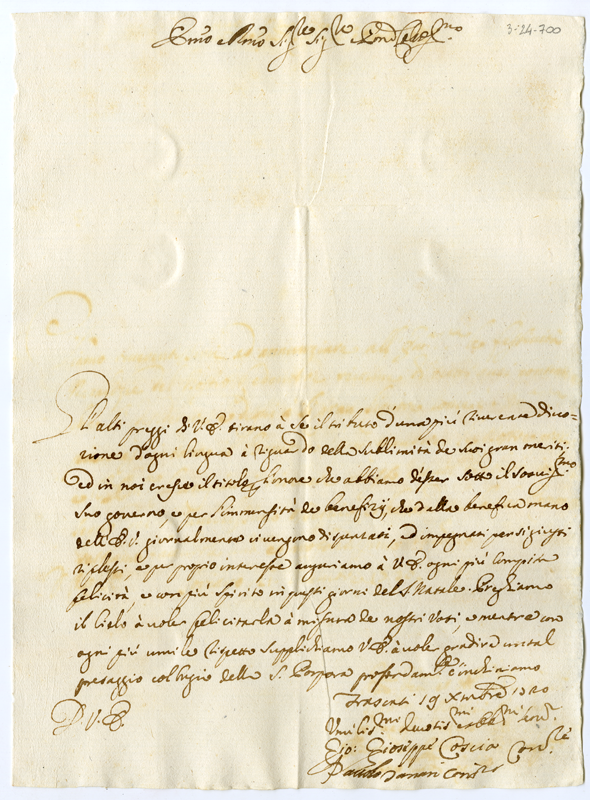 Em̃o e Rmõ Sig.re Sig.re e Pron Col.mo
3-24-700
Gl'alti preggi di V. E. tirano à se il tributo d'una più riverente divo=
zione d'ogni lingua à riguardo della sublimità de suoi gran meriti;
ed in noi cresce il titolo l'onore che abbiamo d'esser sotto il soavis.mo
suo governo, e per l'immensità de benefizij, che dalla benefica mano
dell'E. V. giornalmente ci vengono dispensati, ed impegnati per sì giusti
riflessi, e per proprio interesse auguriamo à V. E. ogni più compita
felicità, e con più spirito in questi giorni del S. Natale. Preghiamo
il Cielo à voler felicitarla à misura de nostri voti, e mentre con
ogni più umile rispetto supplichiamo V. E. à voler gradire un tal
presaggio col bagio della S. Porpora profondam.te c'inchiniamo
D. V. E.
Frascati 19 Xmbre
Umilis.mi Devotis.mi
Gio: Gioseppe Coscia
Pauolo